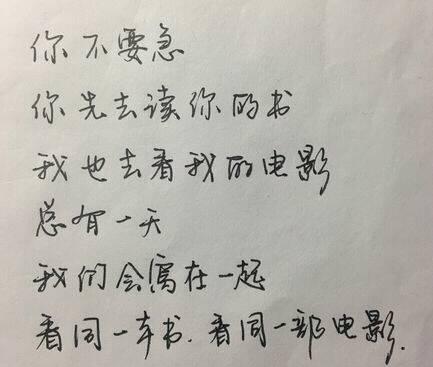 你不要急
你先去读你的书
我也去看我的电影
总有一天
我们会窝在一起
看同一本书.看同一部电影.